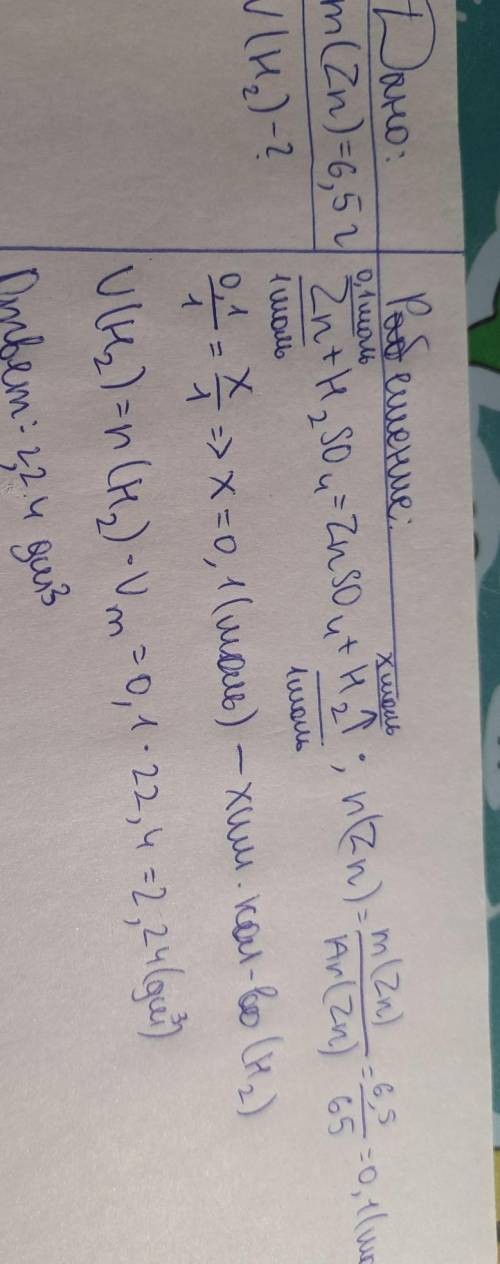 Дано:
m(Zn)=6,5 г
V(H₂)-?
Решение:
0,1 моль x моль
Zn + H₂SO₄ = ZnSO₄ + H₂↑ ; n(Zn) = m(Zn)/Ar(Zn) = 6,5/65 = 0,1(мо
1 моль 1 моль
0,1/1 = x/1 => x = 0,1(моль) – хим. кол-во (H₂)
V(H₂) = n(H₂) · Vm = 0,1 · 22,4 = 2,24(дм³)
Ответ: 2,24 дм³